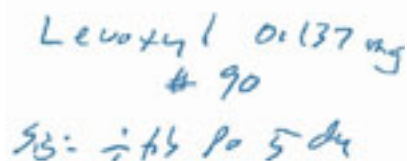 Levoxyl 0.137 mg
# 90
Sig: i tab po